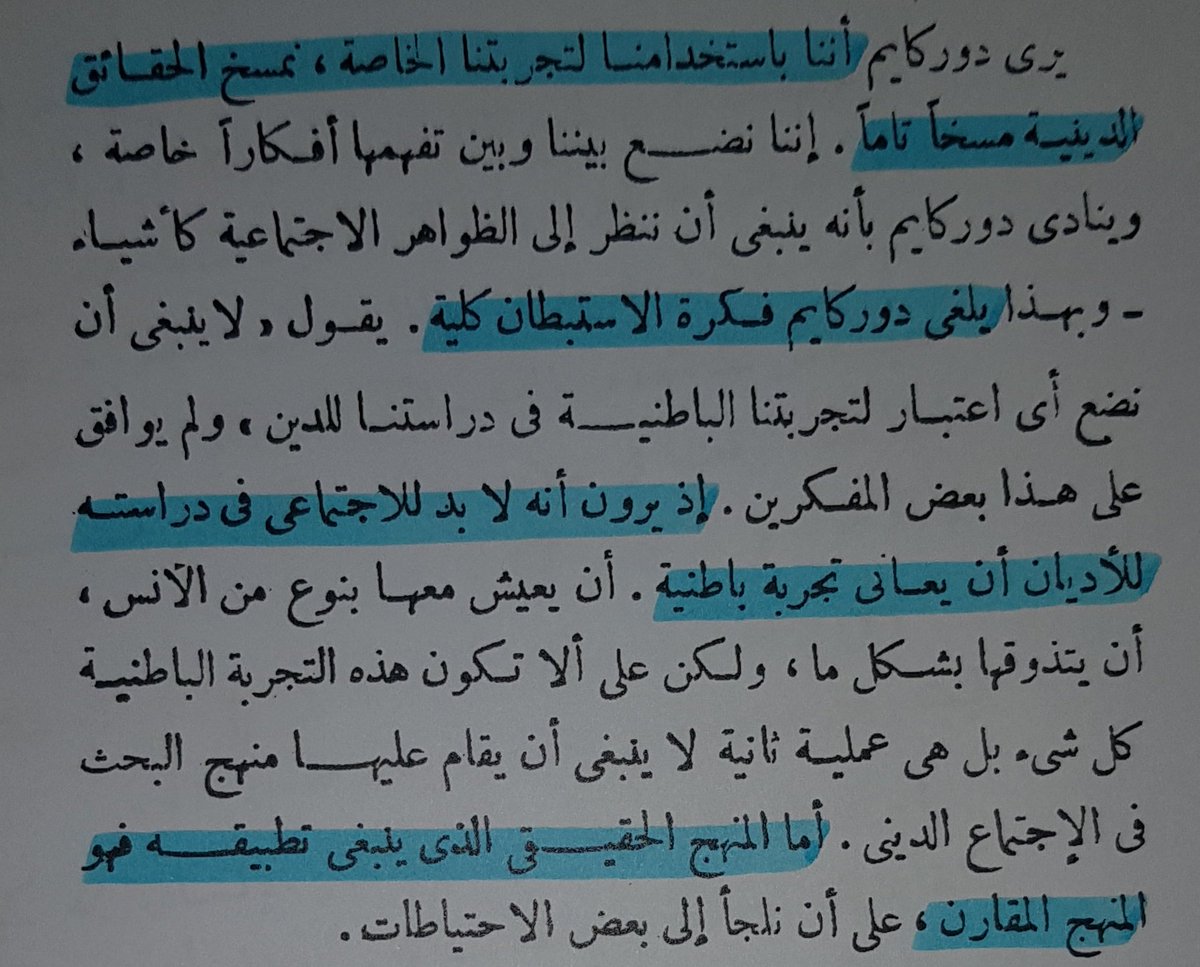 يرى دوركايم أننا باستخدامنا لتجربتنا الخاصة ، نمسخ الحقائق
الدينية مسخاً تاماً . إننا نضع بيننا وبين تفهمها أفكاراً خاصة ،
وينادى دوركايم بأنه ينبغى أن ننظر إلى الظواهر الاجتماعية كأشياء
ـ وبهذا يلغى دوركايم فكرة الاستبطان كلية . يقول « لا ينبغى أن
نضع أى اعتبار لتجربتنا الباطنية فى دراستنا للدين ، ولم يوافق
على هذا بعض المفكرين . إذ يرون أنه لا بد للاجتماعى فى دراسته
للأديان أن يعانى تجربة باطنية . أن يعيش معها بنوع من الآنس ،
أن يتذوقها بشكل ما ، ولكن على ألا تكون هذه التجربة الباطنية
كل شىء بل هى عملية ثانية لا ينبغى أن يقام عليها منهج البحث
فى الإجتماع الدينى . أما المنهج الحقيقى الذى ينبغى تطبيقه فهو
المنهج المقارن ، على أن نلجأ إلى بعض الاحتياطات .